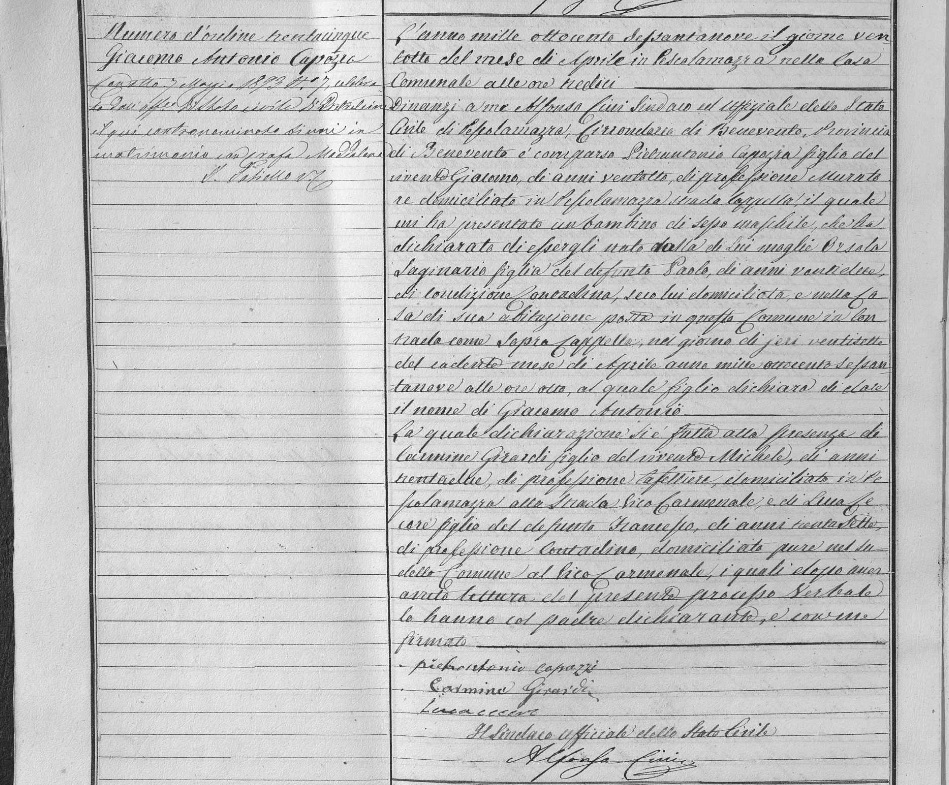 Numero d'ordine trentacinque
Giacomo Antonio Capozzi
7 Maggio 1893
Stato civile di
il qui contronominato si unì in
matrimonio con Maddalena
L'anno mille ottocento sessantanove il giorno ven
totto del mese di Aprile in Pescolamazza nella Casa
Comunale alle ore tredici
Dinanzi a me Alfonso Cini Sindaco ed uffiziale dello Stato
Civile di Pescolamazza, Circondario di Benevento, Provincia
di Benevento è comparso Pietrantonio Capozzi figlio del
vivente Giacomo, di anni ventotto, di professione Murato
re domiciliato in Pescolamazza strada Cappella, il quale
mi ha presentato un bambino di sesso maschile, che ha
dichiarato di essergli nato dalla di lui moglie Orsola
Saginario figlia del defunto Paolo, di anni ventidue,
di condizione Contadina, seco lui domiciliata, e nella Ca
sa di sua abitazione posta in questo Comune in Con
trada come sopra Cappella, nel giorno di jeri ventisette
del cadente mese di Aprile anno mille ottocento sessan
tanove alle ore otto, al quale figlio dichiara di dare
il nome di Giacomo Antonio
La quale dichiarazione si è fatta alla presenza di
Carmine Girardi figlio del vivente Michele, di anni
trentadue, di professione domiciliato in Pe
scolamazza alla Strada Vico Carmenale, e di Luca Ce
core figlio del defunto Francesco, di anni trentasette,
di professione Contadino, domiciliato pure nel su
detto Comune al Vico Carmenale, i quali dopo aver
avuto lettura del presente processo verbale
lo hanno col padre dichiarante, e con me
firmato
pietrantonio capozzi
Carmine Girardi
Luca
Il Sindaco ufficiale dello Stato Civile
Alfonso Cini